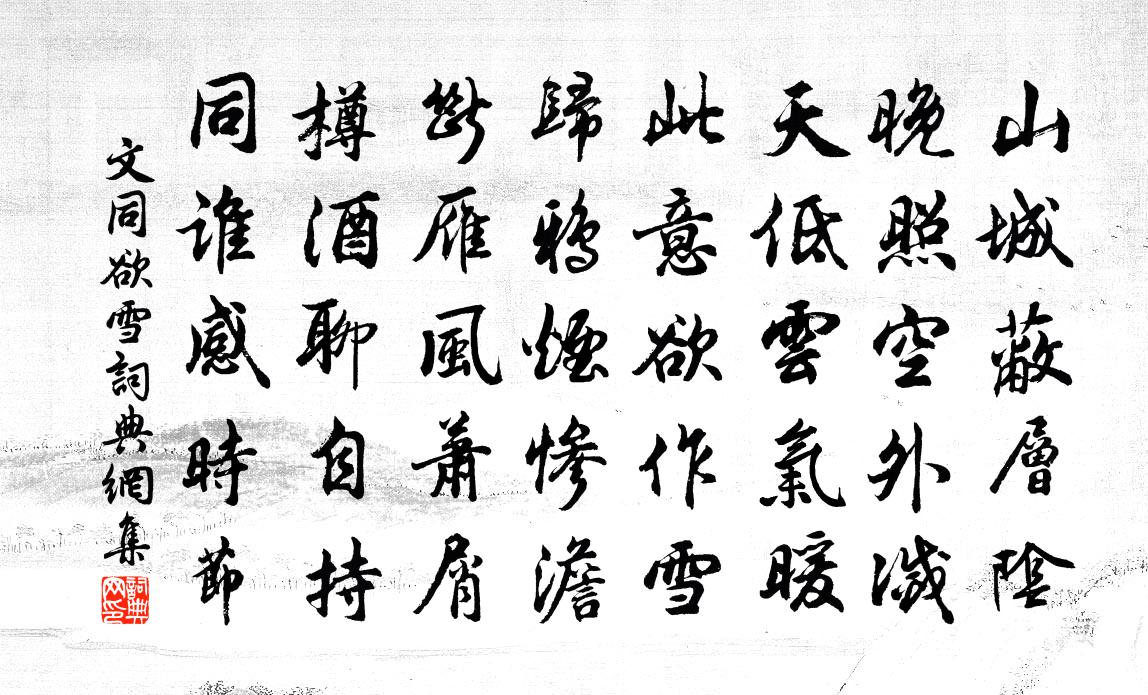 山城蔽層陰
晚照空外滅
天低雲氣暖
此意欲作雪
歸鴉煙慘澹
斷雁風蕭屑
樽酒聊自持
同誰感時節
文同欲雪詞典網集
詞典網印